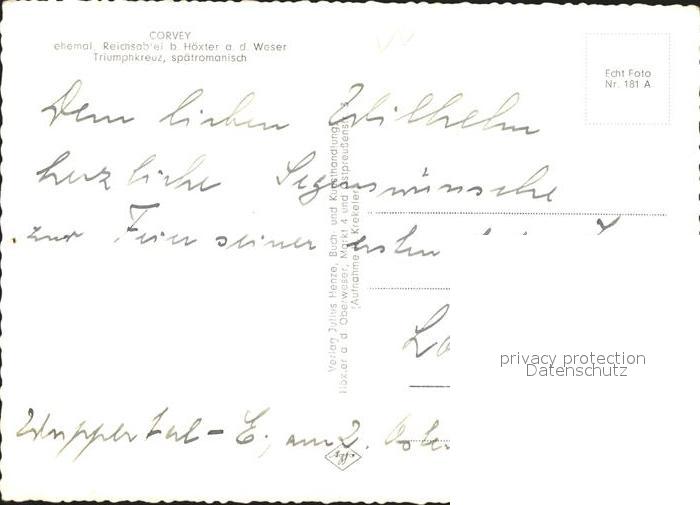 CORVEY
ehemal. Reichsabtei b. Höxter a. d. Weser
Triumphkreuz, spätromanisch
Echt Foto
Nr. 181 A
Dem lieben Wilhelm
herzliche Segenswünsche
zur Feier seiner ersten
Verlag Julius Henze, Buch- und Kunsthandlung,
Höxter a. d. Oberweser, Markt 4 und Westpreußenstr.
(Aufnahme Krekeler)
privacy protection
Datenschutz
Wuppertal-E., am 2.